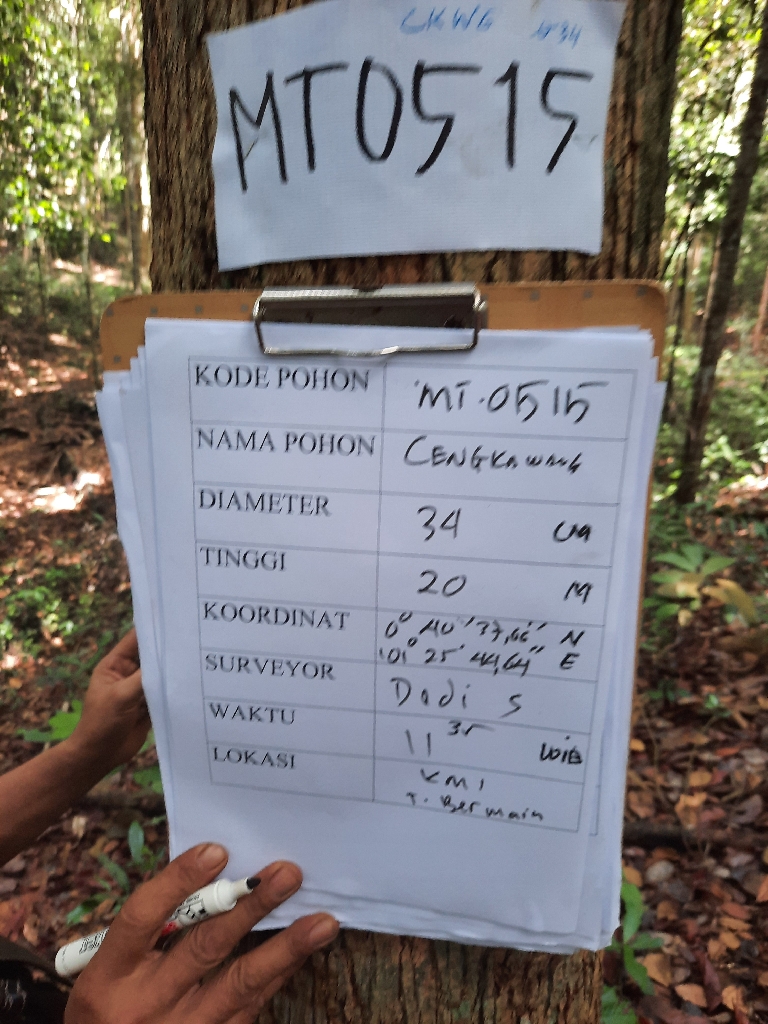 CKWG #34
MT0515
KODE POHON MT.0515
NAMA POHON CENGKAWANG
DIAMETER 34 CM
TINGGI 20 M
KOORDINAT 0° 40' 37,66" N
101° 25' 44,64" E
SURVEYOR Dodi S
WAKTU 11 35 WIB
LOKASI KMI
T. Bermain